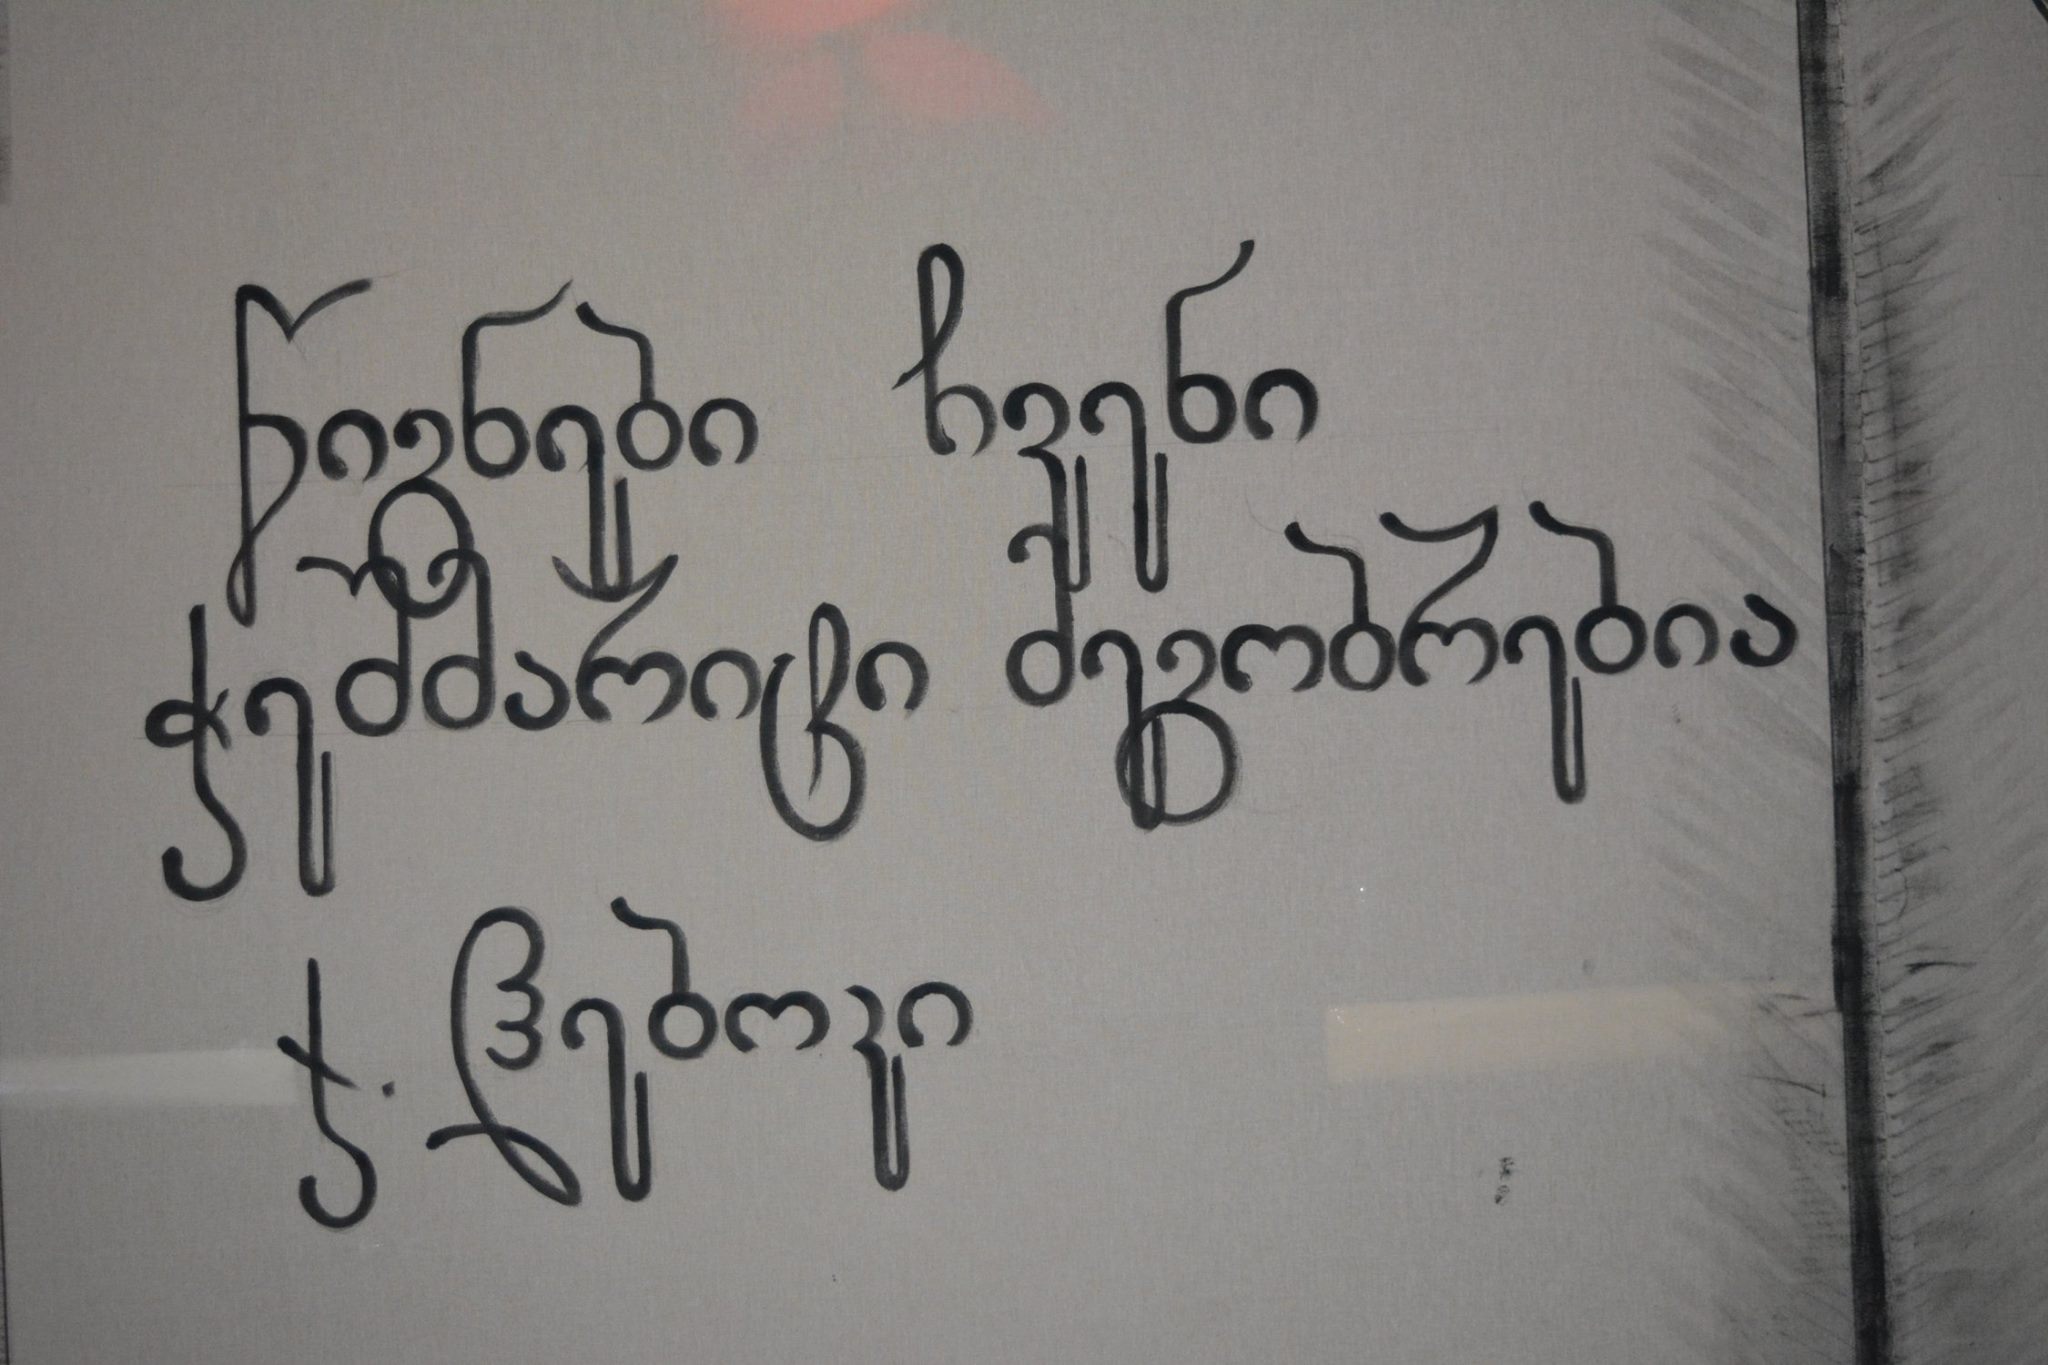 წიგნები ჩვენი
ჭეშმარიტი მეგობრებია
ჯ. ჰებოკი